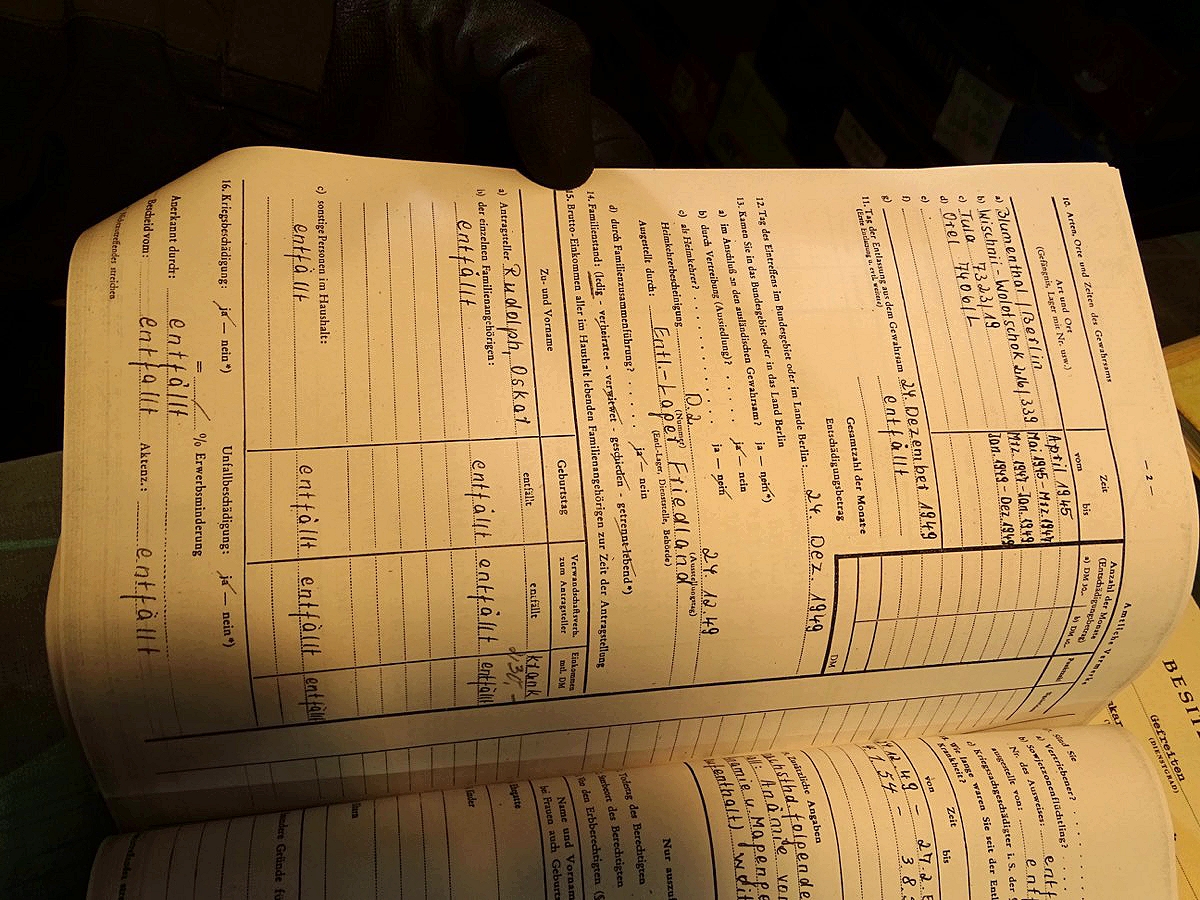 — 2 —
10. Arten, Orte und Zeiten des Gewahrsams
Art und Ort
(Gefängnis, Lager mit Nr. usw.)
Zeit
vom bis
Amtliche Vermerke
Anzahl der Monate
(Entschädigungsbetrag)
a) DM 30.— b) DM
a) Blumenthal/Berlin April 1945
b) Wischni-Wolotschok 216/339 Mai 1945 - Mrz. 1947
c) Tula 7323/19 Mrz. 1947 - Jan. 1949
d) Orel 7406/L Jan. 1949 - Dez. 1949
e)
f)
g)
11. Tag der Entlassung aus dem Gewahrsam 24. Dezember 1949
entfällt
Gesamtzahl der Monate
Entschädigungsbetrag DM
12. Tag des Eintreffens im Bundesgebiet oder im Lande Berlin: 24. Dez. 1949
13. Kamen Sie in das Bundesgebiet oder in das Land Berlin
a) im Anschluß an den ausländischen Gewahrsam? ja — nein*)
b) durch Vertreibung (Aussiedlung)? ja — nein
c) als Heimkehrer? ja — nein
Heimkehrerbescheinigung D2 24.12.49
(Nummer) (Ausstellungstag)
Ausgestellt durch: Entl.-Lager Friedland
(Entl.-Lager, Dienststelle, Behörde)
d) durch Familienzusammenführung? ja — nein
14. Familienstand: (ledig - verheiratet - verwitwet - geschieden - getrennt lebend*)
15. Brutto-Einkommen aller im Haushalt lebenden Familienangehörigen zur Zeit der Antragstellung
Zu- und Vorname Geburtstag Verwandschaftsverh. zum Antragsteller Einkommen mtl. DM
a) Antragsteller Rudolph, Oskar entfällt entfällt krank
b) der einzelnen Familienangehörigen:
entfällt entfällt entfällt entfällt
c) sonstige Personen im Haushalt:
entfällt entfällt entfällt entfällt
16. Kriegsbeschädigung: ja — nein*) Unfallbeschädigung: ja — nein*)
= % Erwerbsminderung
Anerkannt durch: entfällt
Bescheid vom: entfällt Aktenz.: entfällt
Sind Sie
a) Vertriebener?
b) Sowjetzonenflüchtling?
Nr. des Ausweises:
ausgestellt von:
c) Kriegssachgeschädigter i. S. der
Wie lange waren Sie seit der
Krankheit?
Zeit
von bis
Zusätzliche Angaben
folgende
Anämie
Nur auszu
Todestag des Berechtigten
des Berechtigten
den Erbberechtigten
Name und Vorname
bei Frauen auch Geburts
Gefreiten
(DIENSTGRAD)